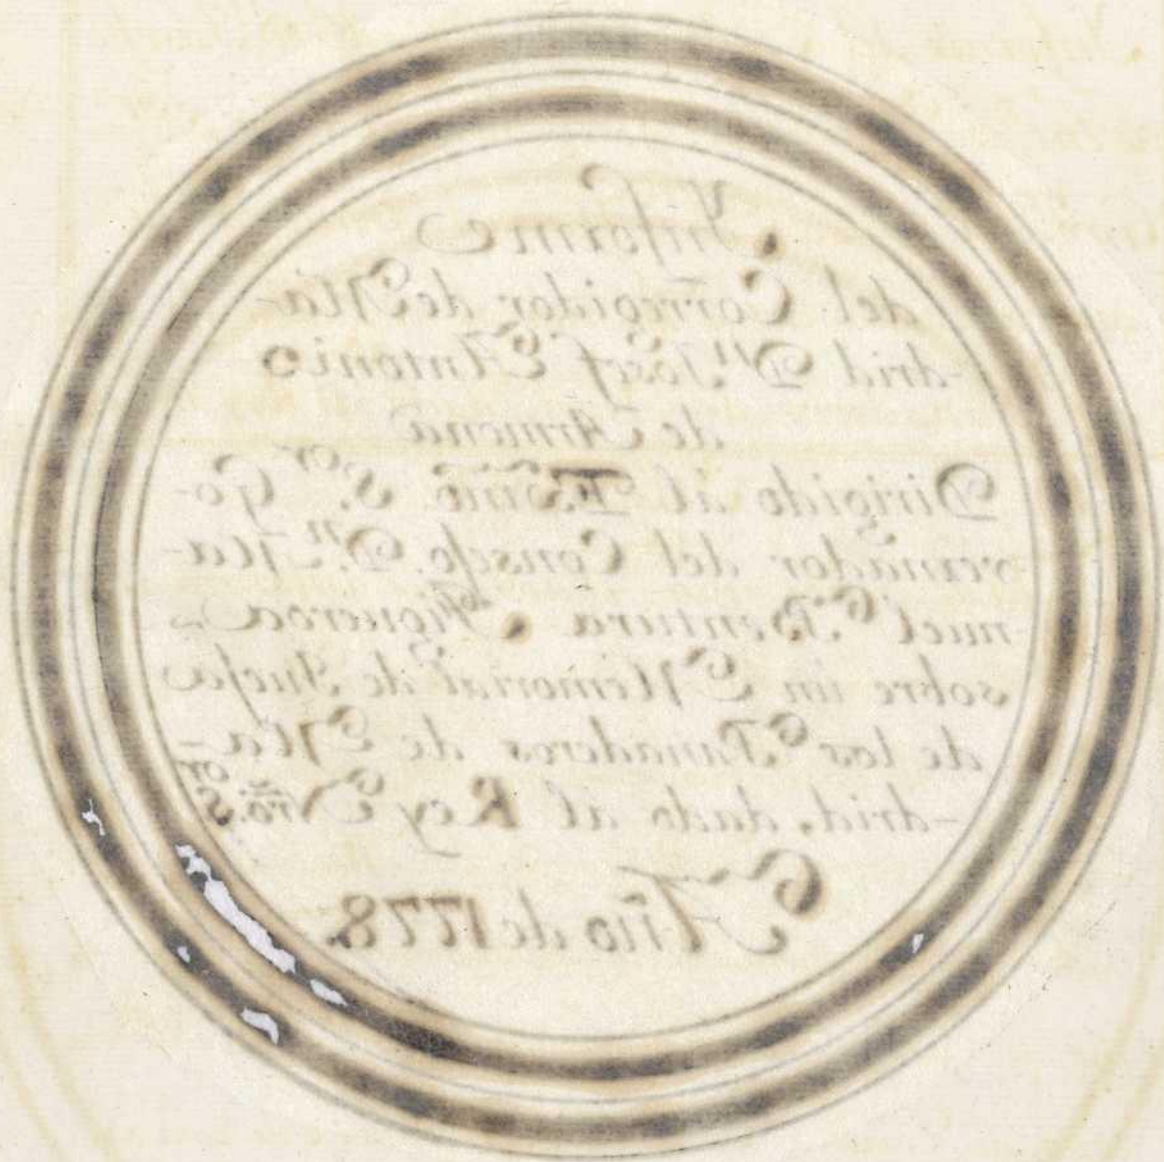 Informe
del Correg̃idor de Ma-
drid Dⁿ Josef Antonio
de Armona
Dirigido al Exm̃o. S.ᵒʳ Go-
vernador del Consejo. D.ⁿ Ma-
nuel Bentura Figueroa
sobre un Memorial de Quejas
de los Panaderos de Ma-
drid, dado al Rey Nr̃o. S.ᵒʳ
Año de 1778.